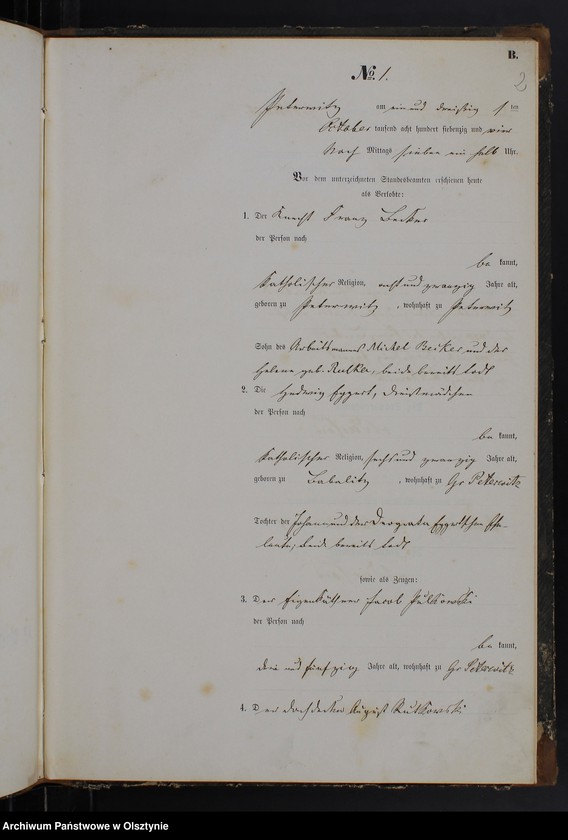 B.
No. 1.
2
Peterwitz am ein und dreißig sten
October tausend acht hundert siebenzig und vier
Nach Mittags sieben ein halb Uhr.
Vor dem unterzeichneten Standesbeamten erschienen heute
als Verlobte:
1. Der Knecht Franz Becker
der Person nach
be kannt,
katholischer Religion, acht und zwanzig Jahre alt,
geboren zu Peterwitz, wohnhaft zu Peterwitz
Sohn des Arbeitsmannes Michel Becker und der
Helene geb. Rutka, beide bereits todt
2. Die Hedwig Eggert, Dienstmädchen
der Person nach
be kannt,
katholischer Religion, sechs und zwanzig Jahre alt,
geboren zu Babalitz, wohnhaft zu Gr Peterwitz
Tochter der Johann und der Eggert'schen Ehe-
leute, beide bereits todt
sowie als Zeugen:
3. Der Eigenkäthner Jacob Pulkowski
der Person nach
be kannt,
drei und fünfzig Jahre alt, wohnhaft zu Gr Peterwitz
4. Der Dachdecker August Rutkowski
Archiwum Państwowe w Olsztynie